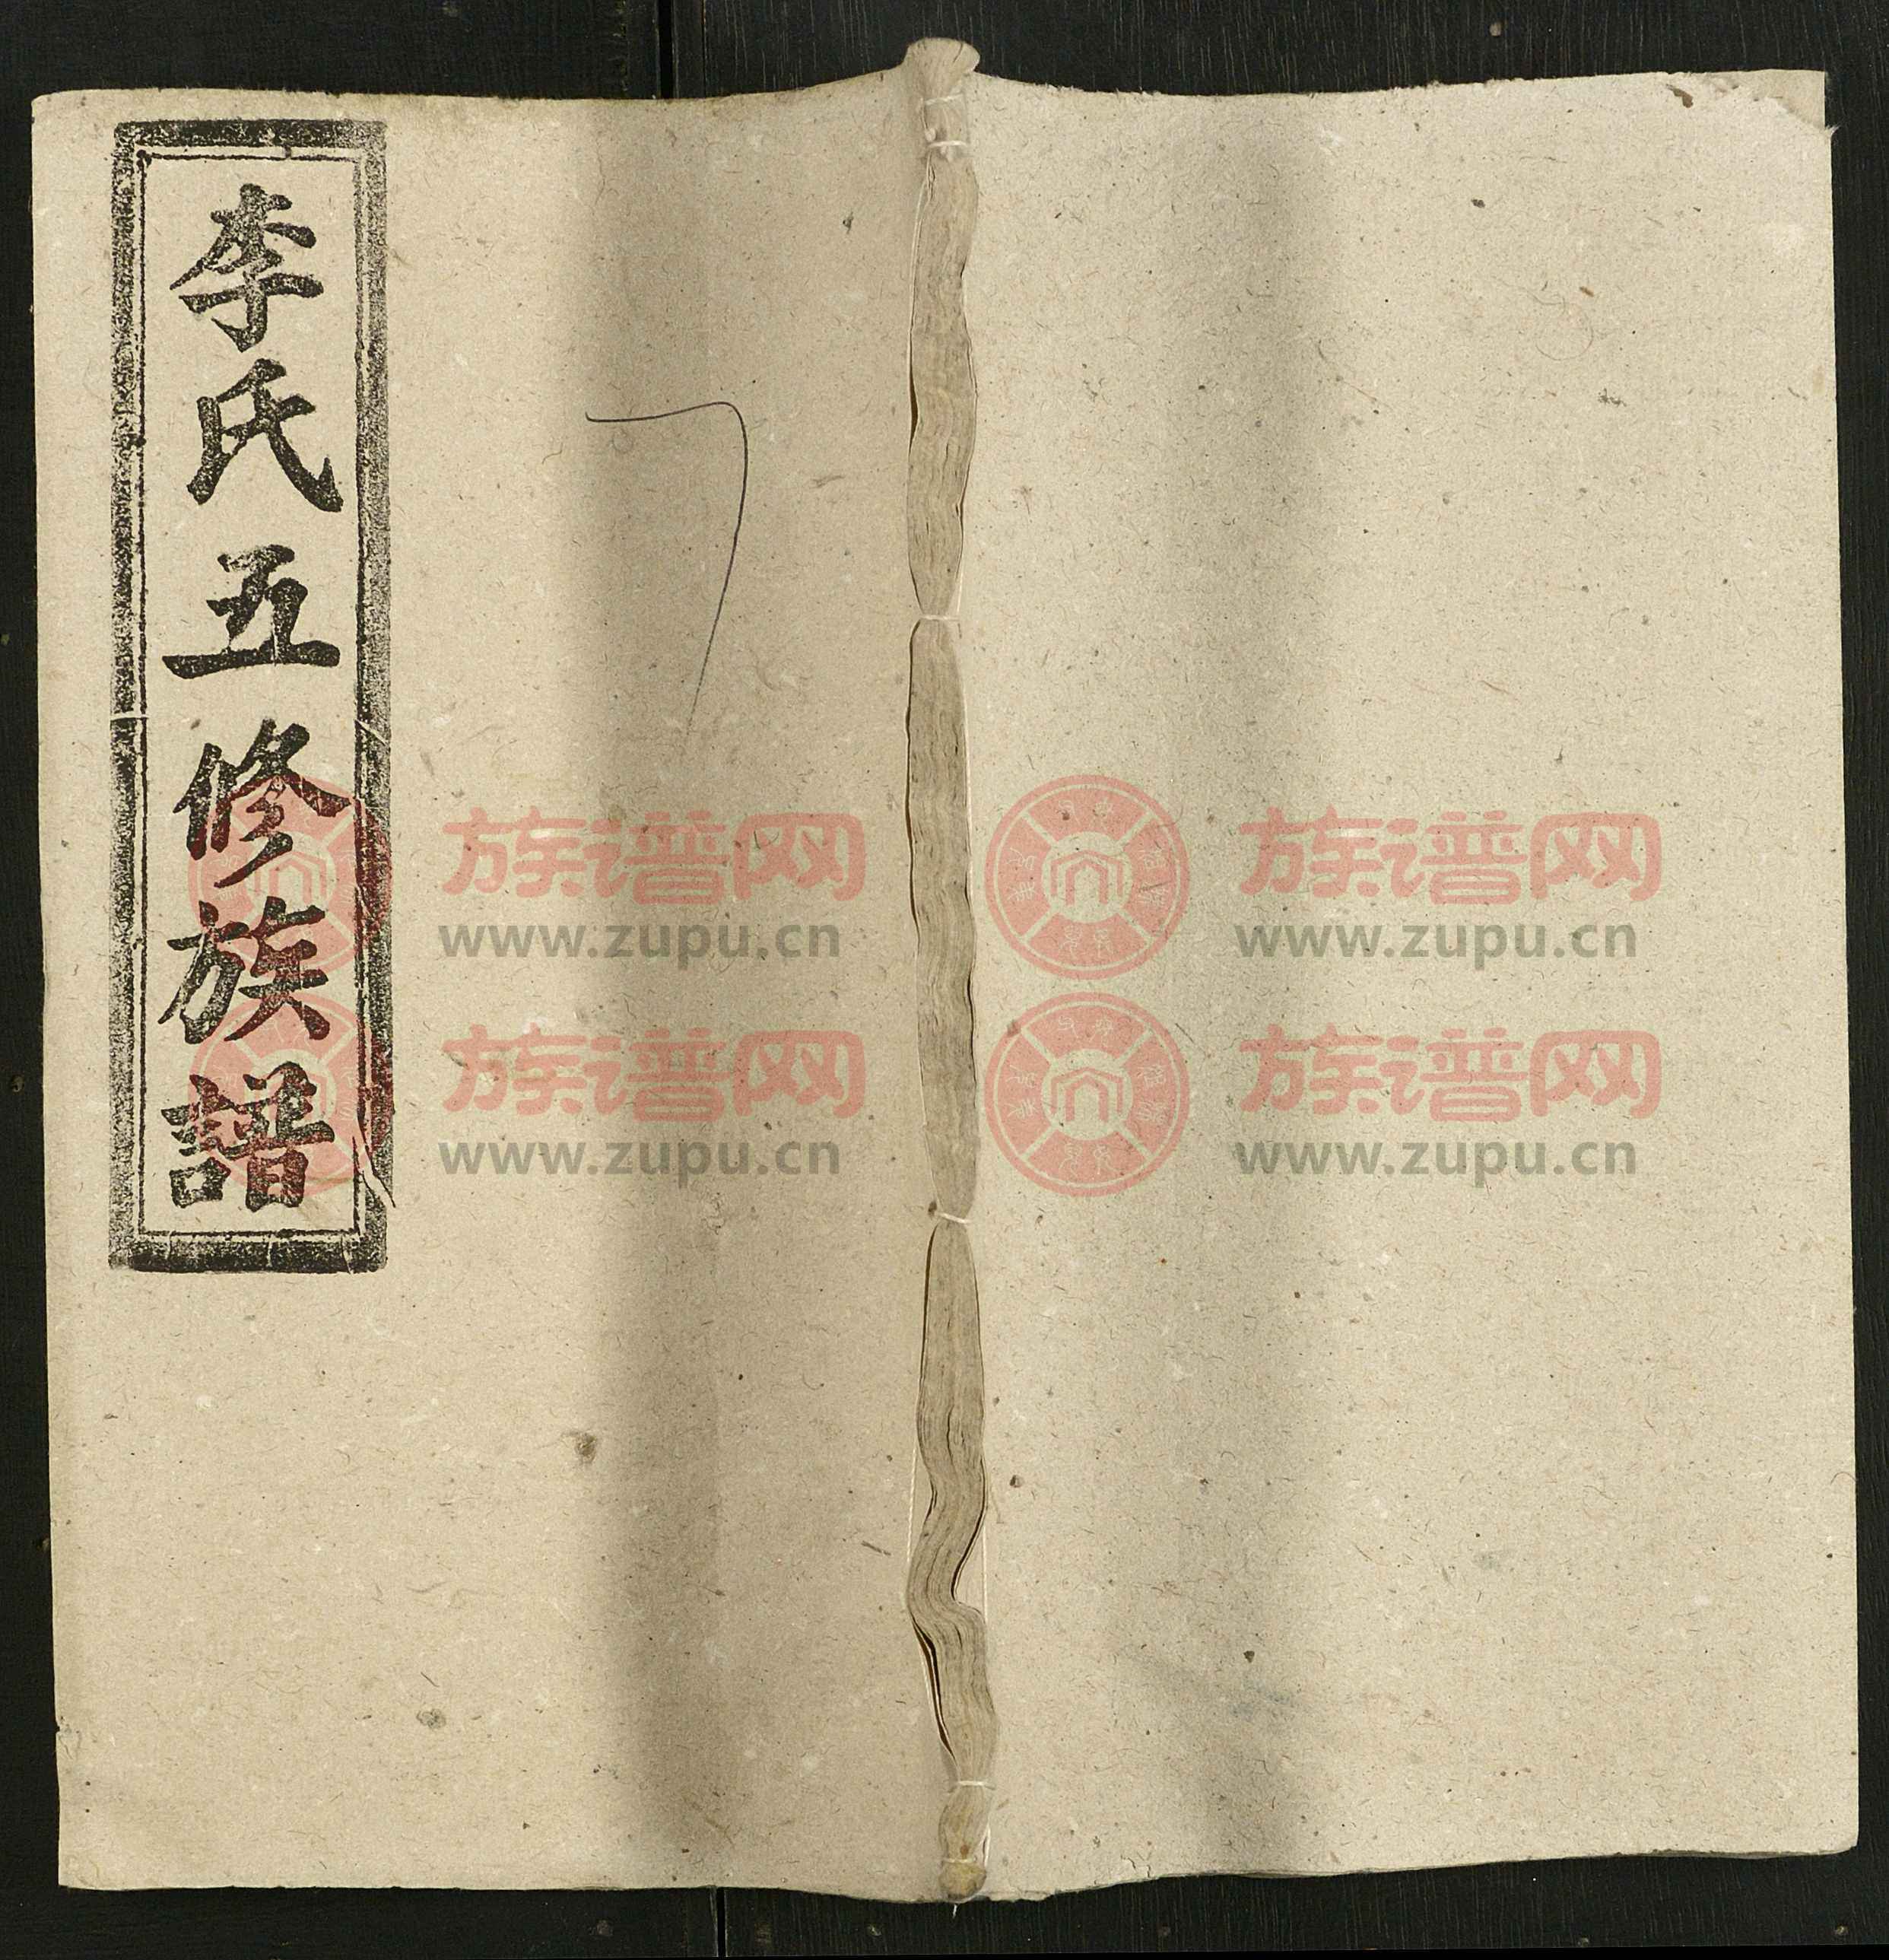 李氏五修族譜
7
族谱网
www.zupu.cn
族谱网
www.zupu.cn
族谱网
www.zupu.cn
族谱网
www.zupu.cn